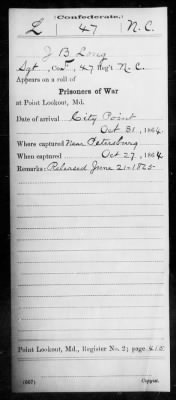 (Confederate.)
L 47 N.C.
J B Long
Sgt, Co. , 47 Reg't N.C.
Appears on a roll of
Prisoners of War
at Point Lookout, Md.
Date of arrival City Point
Oct 31, 1864.
Where captured Near Petersburg
When captured Oct 27, 1864
Remarks: Released June 21-1865
Point Lookout, Md., Register No. 2; page 415
(697)
Copyist.